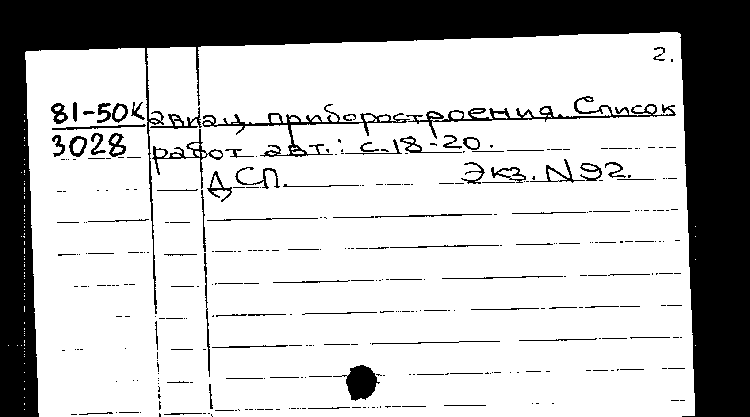 2.
81-50К авиац. приборостроения. Список
3028 работ авт.: с.18-20.
ДСП. Экз. N 92.